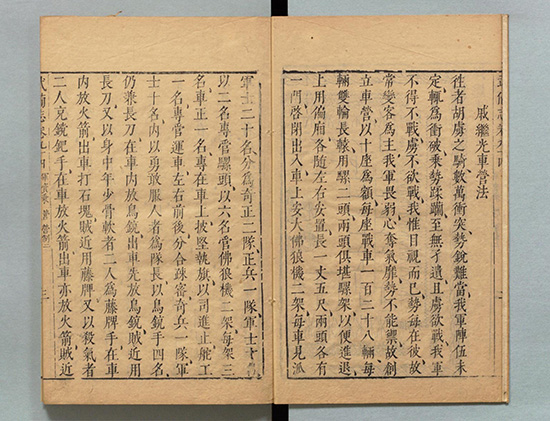 戚繼光車營法
往者胡虜之騎數萬衝突勢銳難當我軍陣伍未
定輒為衝破乘勢蹂躪至無孑遺且虜欲戰我軍
不得不戰虜不欲戰我惟目視而已勢每在彼故
常變客為主我軍畏弱心奪氣靡勢不能禦故創
立車營以十座為額每座戰車一百二十八輛每
輛雙輪長轅用騾二頭兩頭俱堪騾架以便進退
上用偏廂各隨左右安置長一丈五尺兩頭各有
一門啓閉出入車上安大佛狼機二架每車見派
軍士二十名分為奇正二隊正兵一隊軍士十
以二名專管騾頭以六名管佛狼機二架每架三
名車正一名專在車上披堅執旗以司進止舵工
一名專管運車左右前後分合疎密奇兵一隊軍
士十名内以勇敢服人者為隊長以鳥銃手四名
仍兼長刀在車内放鳥銃出車先放鳥銃賊近用
長刀又以身中年少骨軟者二人為藤牌手在車
内放火箭出車打石塊賊近用藤牌又以殺氣者
二人充鎲鈀手在車放火箭出車亦放火箭賊近
武備志卷九四 三